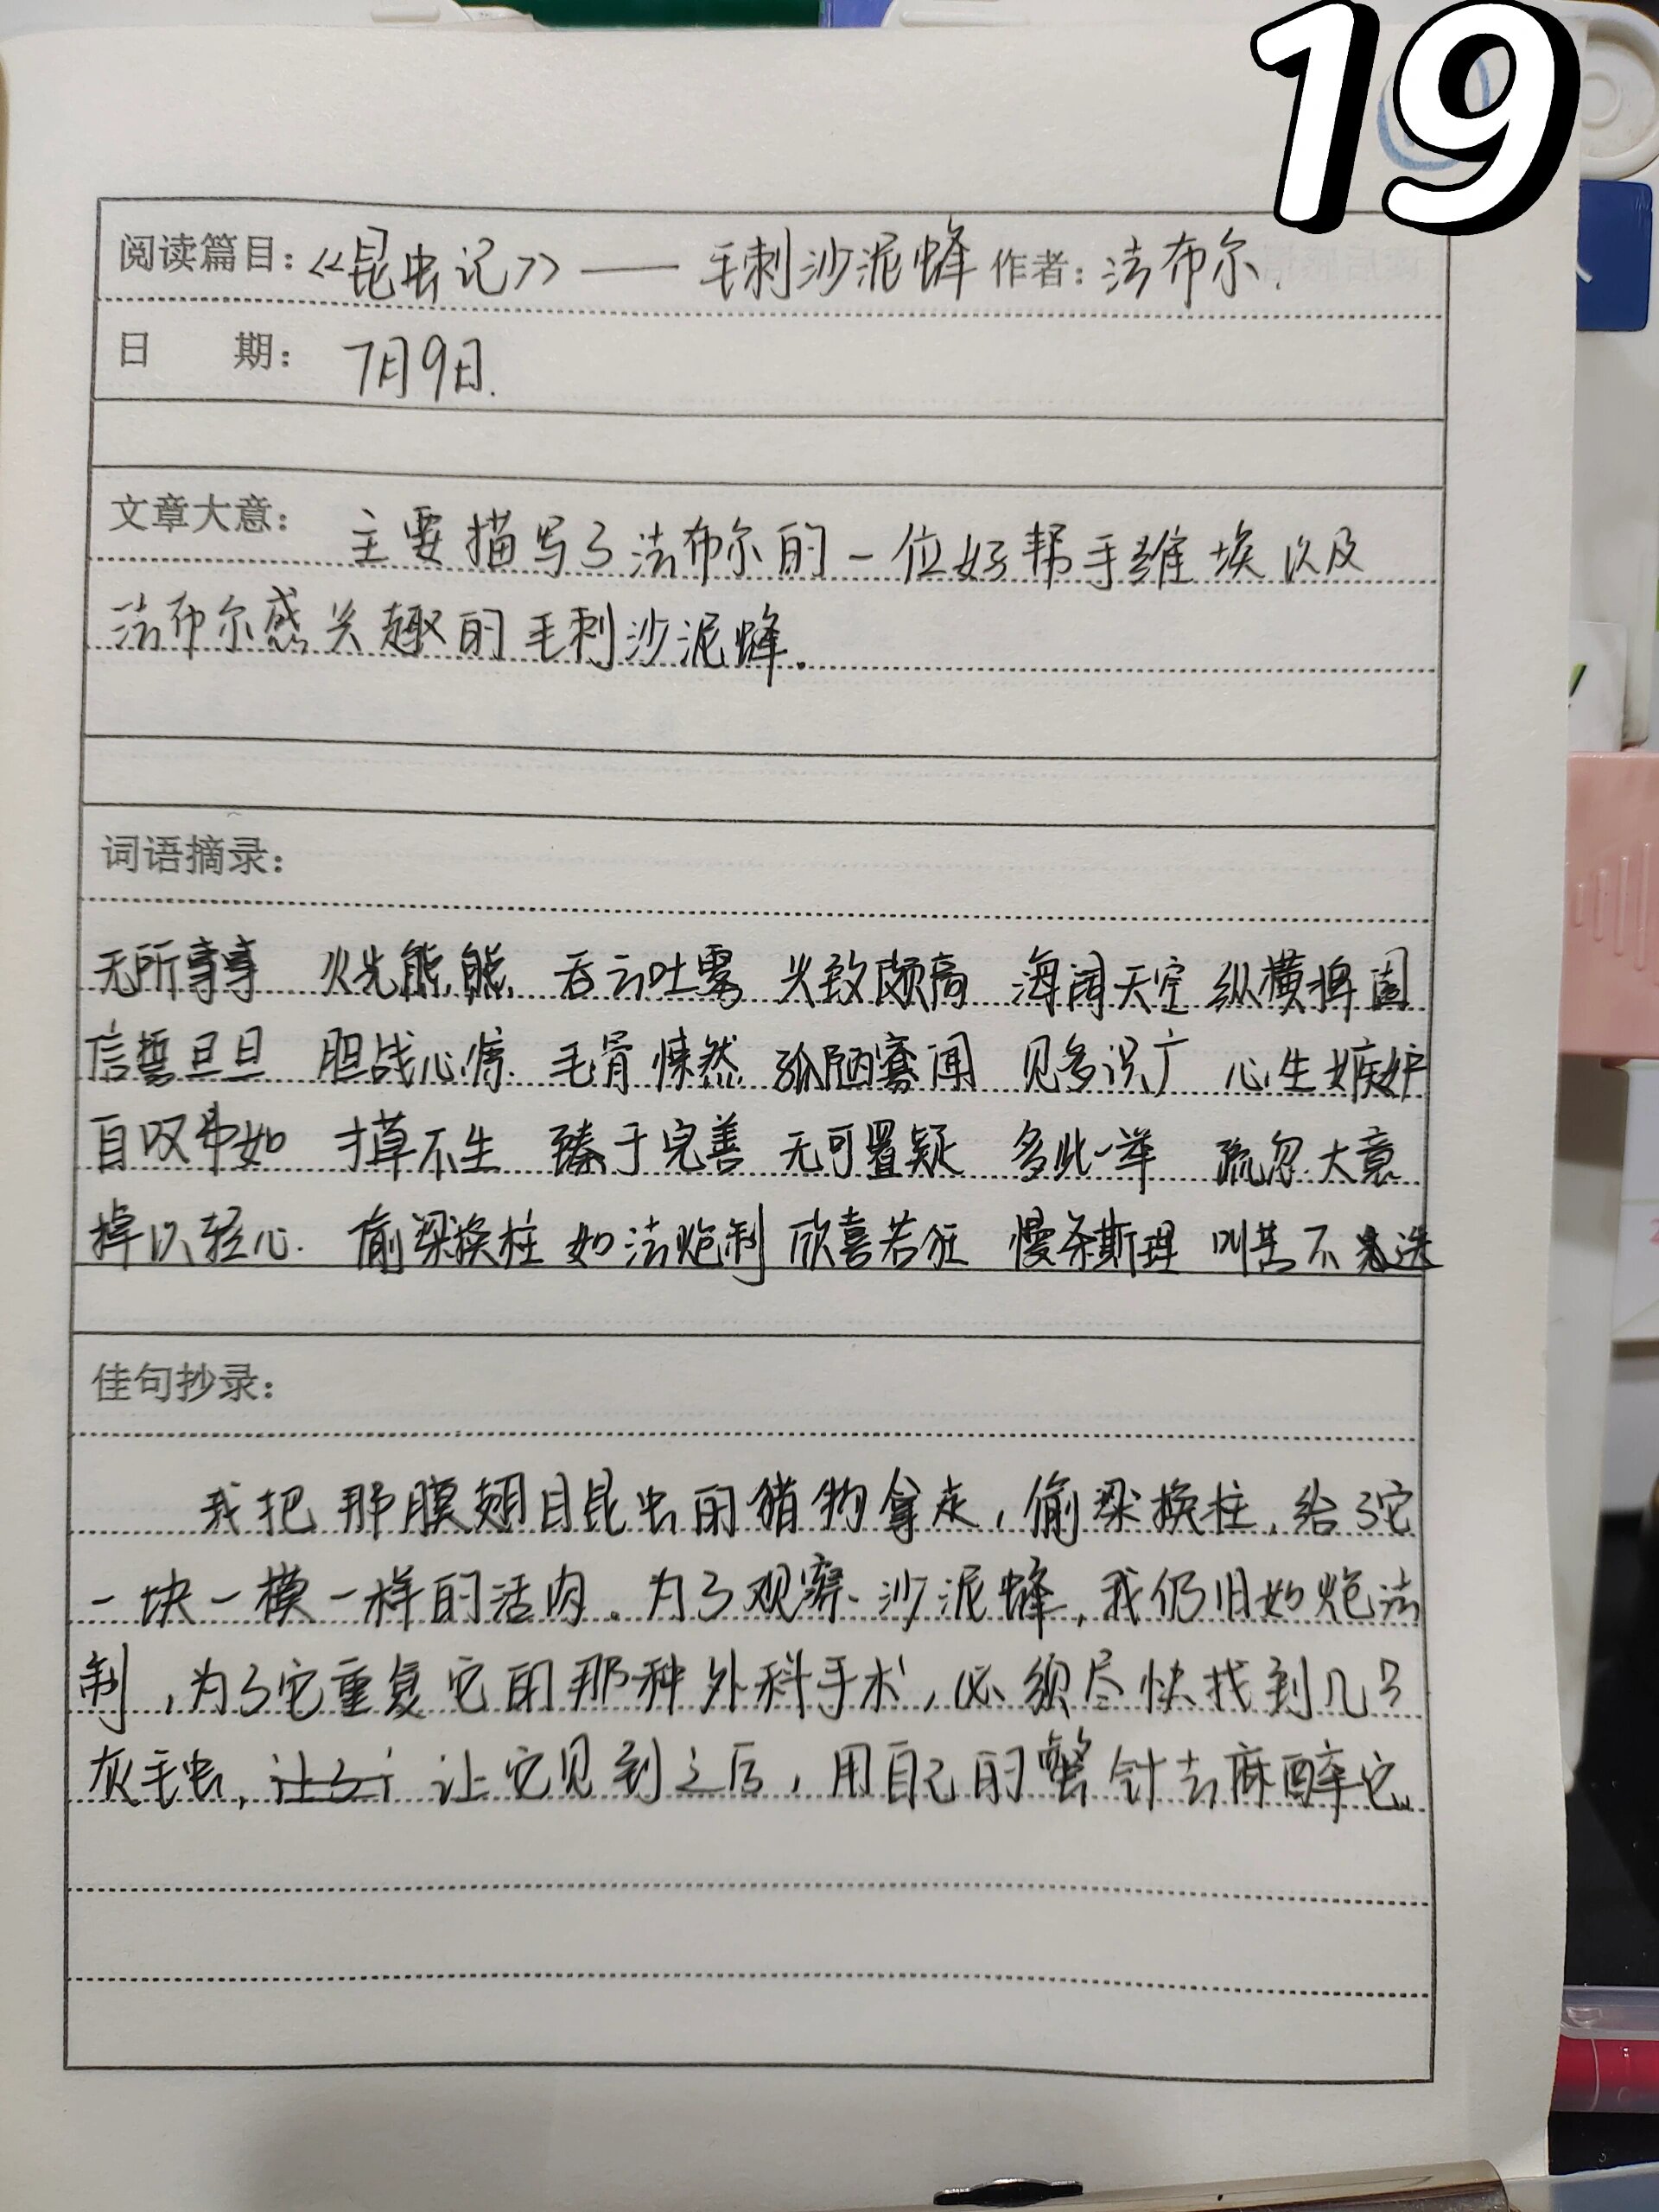 19
阅读篇目：《昆虫记》——毛刺沙泥蜂 作者：法布尔.
日 期： 7月9日.
文章大意： 主要描写了法布尔的一位好帮手维埃以及
法布尔感兴趣的毛刺沙泥蜂.
词语摘录：
无所事事 火光熊熊 吞云吐雾 兴致颇高 海阔天空 纵横捭阖
信誓旦旦 胆战心惊. 毛骨悚然 孤陋寡闻 见多识广 心生嫉妒
自叹弗如 寸草不生 臻于完善 无可置疑 多此一举 疏忽大意
掉以轻心. 偷梁换柱 如法炮制 欣喜若狂 慢条斯理 叫苦不迭
佳句抄录：
我把那膜翅目昆虫的猎物拿走，偷梁换柱，给了它
一块一模一样的活肉。为了观察沙泥蜂，我仍旧如炮法
制，为了它重复它的那种外科手术，必须尽快找到几只
灰毛虫，让它见到之后，用自己的螫针去麻醉它。